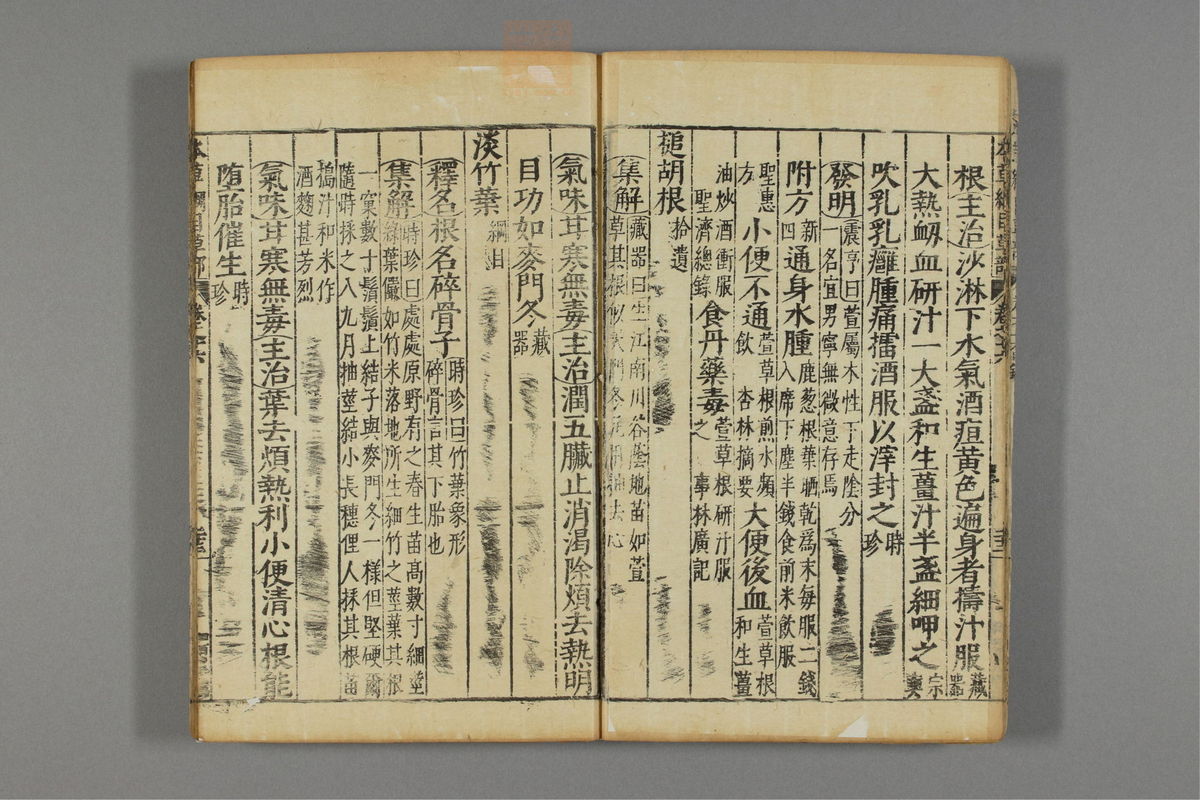 根主治沙淋下水氣酒疸黃色遍身者擣汁服藏器
大熱衂血研汁一大盞和生薑汁半盞細呷之宗奭
吹乳乳癰腫痛擂酒服以滓封之時珍
發明震亨曰萱屬木性下走陰分一名宜男寧無微意存焉
附方新四通身水腫鹿葱根葉晒乾爲末每服二錢入席下塵半錢食前米飲服
聖惠方小便不通萱草根煎水頻飲杏林摘要大便後血萱草根和生薑
油炒酒衝服聖濟總錄食丹藥毒萱草根研汁服之事林廣記
搥胡根拾遺
集解藏器曰生江南川谷蔭地苗如萱草其根似天門冬凡用抽去心
氣味甘寒無毒主治潤五臟止消渴除煩去熱明
目功如麥門冬藏器
淡竹葉綱目
釋名根名碎骨子時珍曰竹葉象形碎骨言其下胎也
集解時珍曰處處原野有之春生苗高數寸細莖綠葉儼如竹米落地所生細竹之莖葉其根
一窠數寸鬚鬚上結子與麥門冬一樣但堅硬爾隨時採之八九月抽莖結小長穗俚人採其根苗
搗汁和米作酒麴甚芳烈
氣味甘寒無毒主治葉去煩熱利小便清心根能
墮胎催生時珍
本草綱目草部